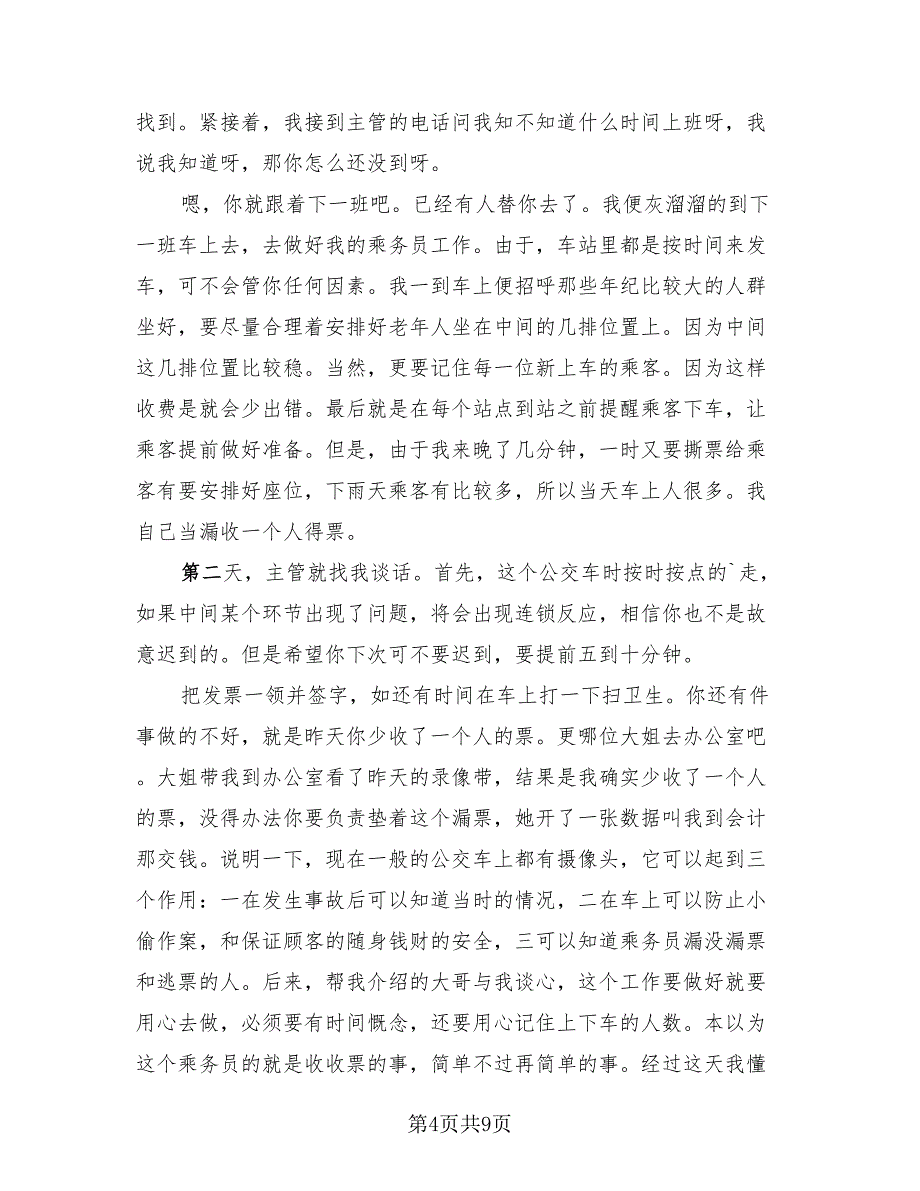 找到。紧接着，我接到主管的电话问我知不知道什么时间上班呀，我
说我知道呀，那你怎么还没到呀。
嗯，你就跟着下一班吧。已经有人替你去了。我便灰溜溜的到下
一班车上去，去做好我的乘务员工作。由于，车站里都是按时间来发
车，可不会管你任何因素。我一到车上便招呼那些年纪比较大的人群
坐好，要尽量合理着安排好老年人坐在中间的几排位置上。因为中间
这几排位置比较稳。当然，更要记住每一位新上车的乘客。因为这样
收费是就会少出错。最后就是在每个站点到站之前提醒乘客下车，让
乘客提前做好准备。但是，由于我来晚了几分钟，一时又要撕票给乘
客有要安排好座位，下雨天乘客有比较多，所以当天车上人很多。我
自己当漏收一个人得票。
第二天，主管就找我谈话。首先，这个公交车时按时按点的`走，
如果中间某个环节出现了问题，将会出现连锁反应，相信你也不是故
意迟到的。但是希望你下次可不要迟到，要提前五到十分钟。
把发票一领并签字，如还有时间在车上打一下扫卫生。你还有件
事做的不好，就是昨天你少收了一个人的票。更哪位大姐去办公室吧
。大姐带我到办公室看了昨天的录像带，结果是我确实少收了一个人
的票，没得办法你要负责垫着这个漏票，她开了一张数据叫我到会计
那交钱。说明一下，现在一般的公交车上都有摄像头，它可以起到三
个作用：一在发生事故后可以知道当时的情况，二在车上可以防止小
偷作案，和保证顾客的随身钱财的安全，三可以知道乘务员漏没漏票
和逃票的人。后来，帮我介绍的大哥与我谈心，这个工作要做好就要
用心去做，必须要有时间慨念，还要用心记住上下车的人数。本以为
这个乘务员的就是收收票的事，简单不过再简单的事。经过这天我懂
第4页共9页